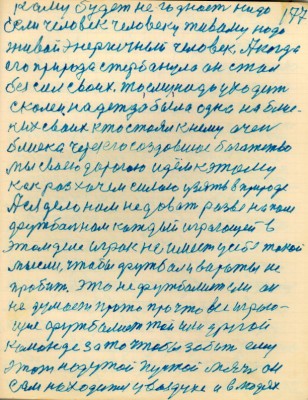 кому будет не годность надо 197
если человек человеку живому надо
живой энергичный человек. А когда
его природа стербанула он стал
без сил своих, то ему надо уходит
с колеи надежда была одна на близ-
ких своих кто стоял к нему очен
близка через его создавшие богатство
мы своею дорогою идём к этому
как раз хочем силою узять в природе
А ея дело нам не доват разве на поле
футбольном каждый играющей в
этом деле играк не имеет у себе такой
мысли, чтобы футбол у вароты не
пробит. Это не футболист если он
не думает прото про что все играю-
щие футболист той или другой
команде за то чтобы забит ему
этот надутой пустой мяч он
сам находится у воздухе и в людях